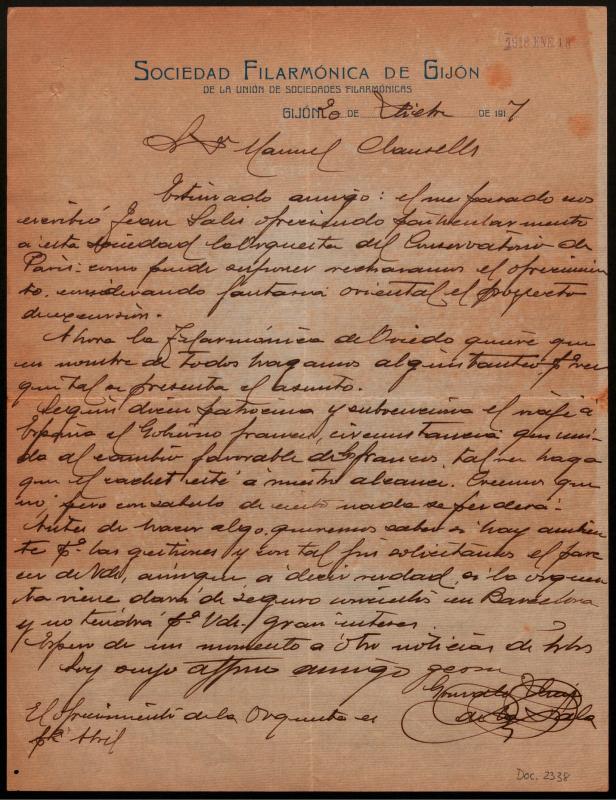 1918 ENE 18
SOCIEDAD FILARMÓNICA DE GIJÓN
DE LA UNIÓN DE SOCIEDADES FILARMÓNICAS
GIJÓN 20 DE Dicbre DE 1917
Sr Dn Manuel Clausells
Estimado amigo: el mes pasado nos
escribió Jean Salis ofreciendo particularmente
á esta sociedad la Orquesta del Conservatorio de
París: como puede suponer rechazamos el ofrecimien
to, considerando fantasía oriental el proyecto
de excursión.
Ahora la Filarmónica de Oviedo quiere que
en nombre de todos hagamos algún tanteo pª ver
que tal se presenta el asunto.
Según dicen patrocina y subvenciona el viaje á
España el Gobierno francés, circunstancia que uni-
da al cambio favorable de los francos, tal vez haga
que el cachet esté á nuestro alcance. Creemos que
no, pero con saberlo de cierto nada se perderá.
Antes de hacer algo, queremos saber si hay ambien
te pª las gestiones y con tal fin solicitamos el pare
cer de Vds, aunque, á decir verdad, si la orques
ta viene dará de seguro conciertos en Barcelona
y no tendrá pª Vds. gran interés.
Espero de un momento á otro noticias de
Soy suyo affmo amigo
Gonzalo
de la Sala
El ofrecimiento de la Orquesta es
pª Abril
Doc. 2338